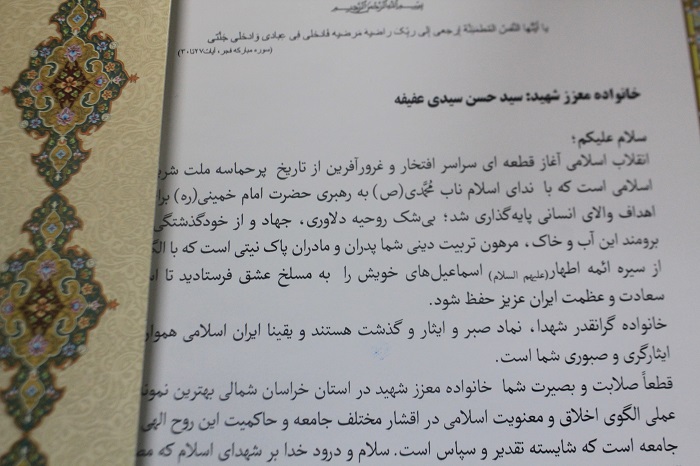 بسم الله الرحمن الرحیم
یا ایتها النفس المطمئنة ارجعی الی ربک راضیه مرضیه فادخلی فی عبادی وادخلی جنتی
(سوره مبارکه فجر، آیات ۲۷تا۳۰)
خانواده معزز شهید: سید حسن سیدی عفیفه
سلام علیکم؛
انقلاب اسلامی آغاز قطعه ای سراسر افتخار و غرورآفرین از تاریخ پرحماسه ملت
اسلامی است که با ندای اسلام ناب محمّدی(ص) به رهبری حضرت امام خمینی(ره)
اهداف والای انسانی پایه‌گذاری شد؛ بی‌شک روحیه دلاوری، جهاد و از خودگذشتگی
برومند این آب و خاک، مرهون تربیت دینی شما پدران و مادران پاک نیتی است که با
از سیره ائمه اطهار(علیهم السلام) اسماعیل‌های خویش را به مسلخ عشق فرستادید تا
سعادت و عظمت ایران عزیز حفظ شود.
خانواده گرانقدر شهدا، نماد صبر و ایثار و گذشت هستند و یقینا ایران اسلامی
ایثارگری و صبوری شما است.
قطعاً صلابت و بصیرت شما خانواده معزز شهید در استان خراسان شمالی بهترین
عملی الگوی اخلاق و معنویت اسلامی در اقشار مختلف جامعه و حاکمیت این روح الهی
جامعه است که شایسته تقدیر و سپاس است. سلام و درود خدا بر شهدای اسلام که